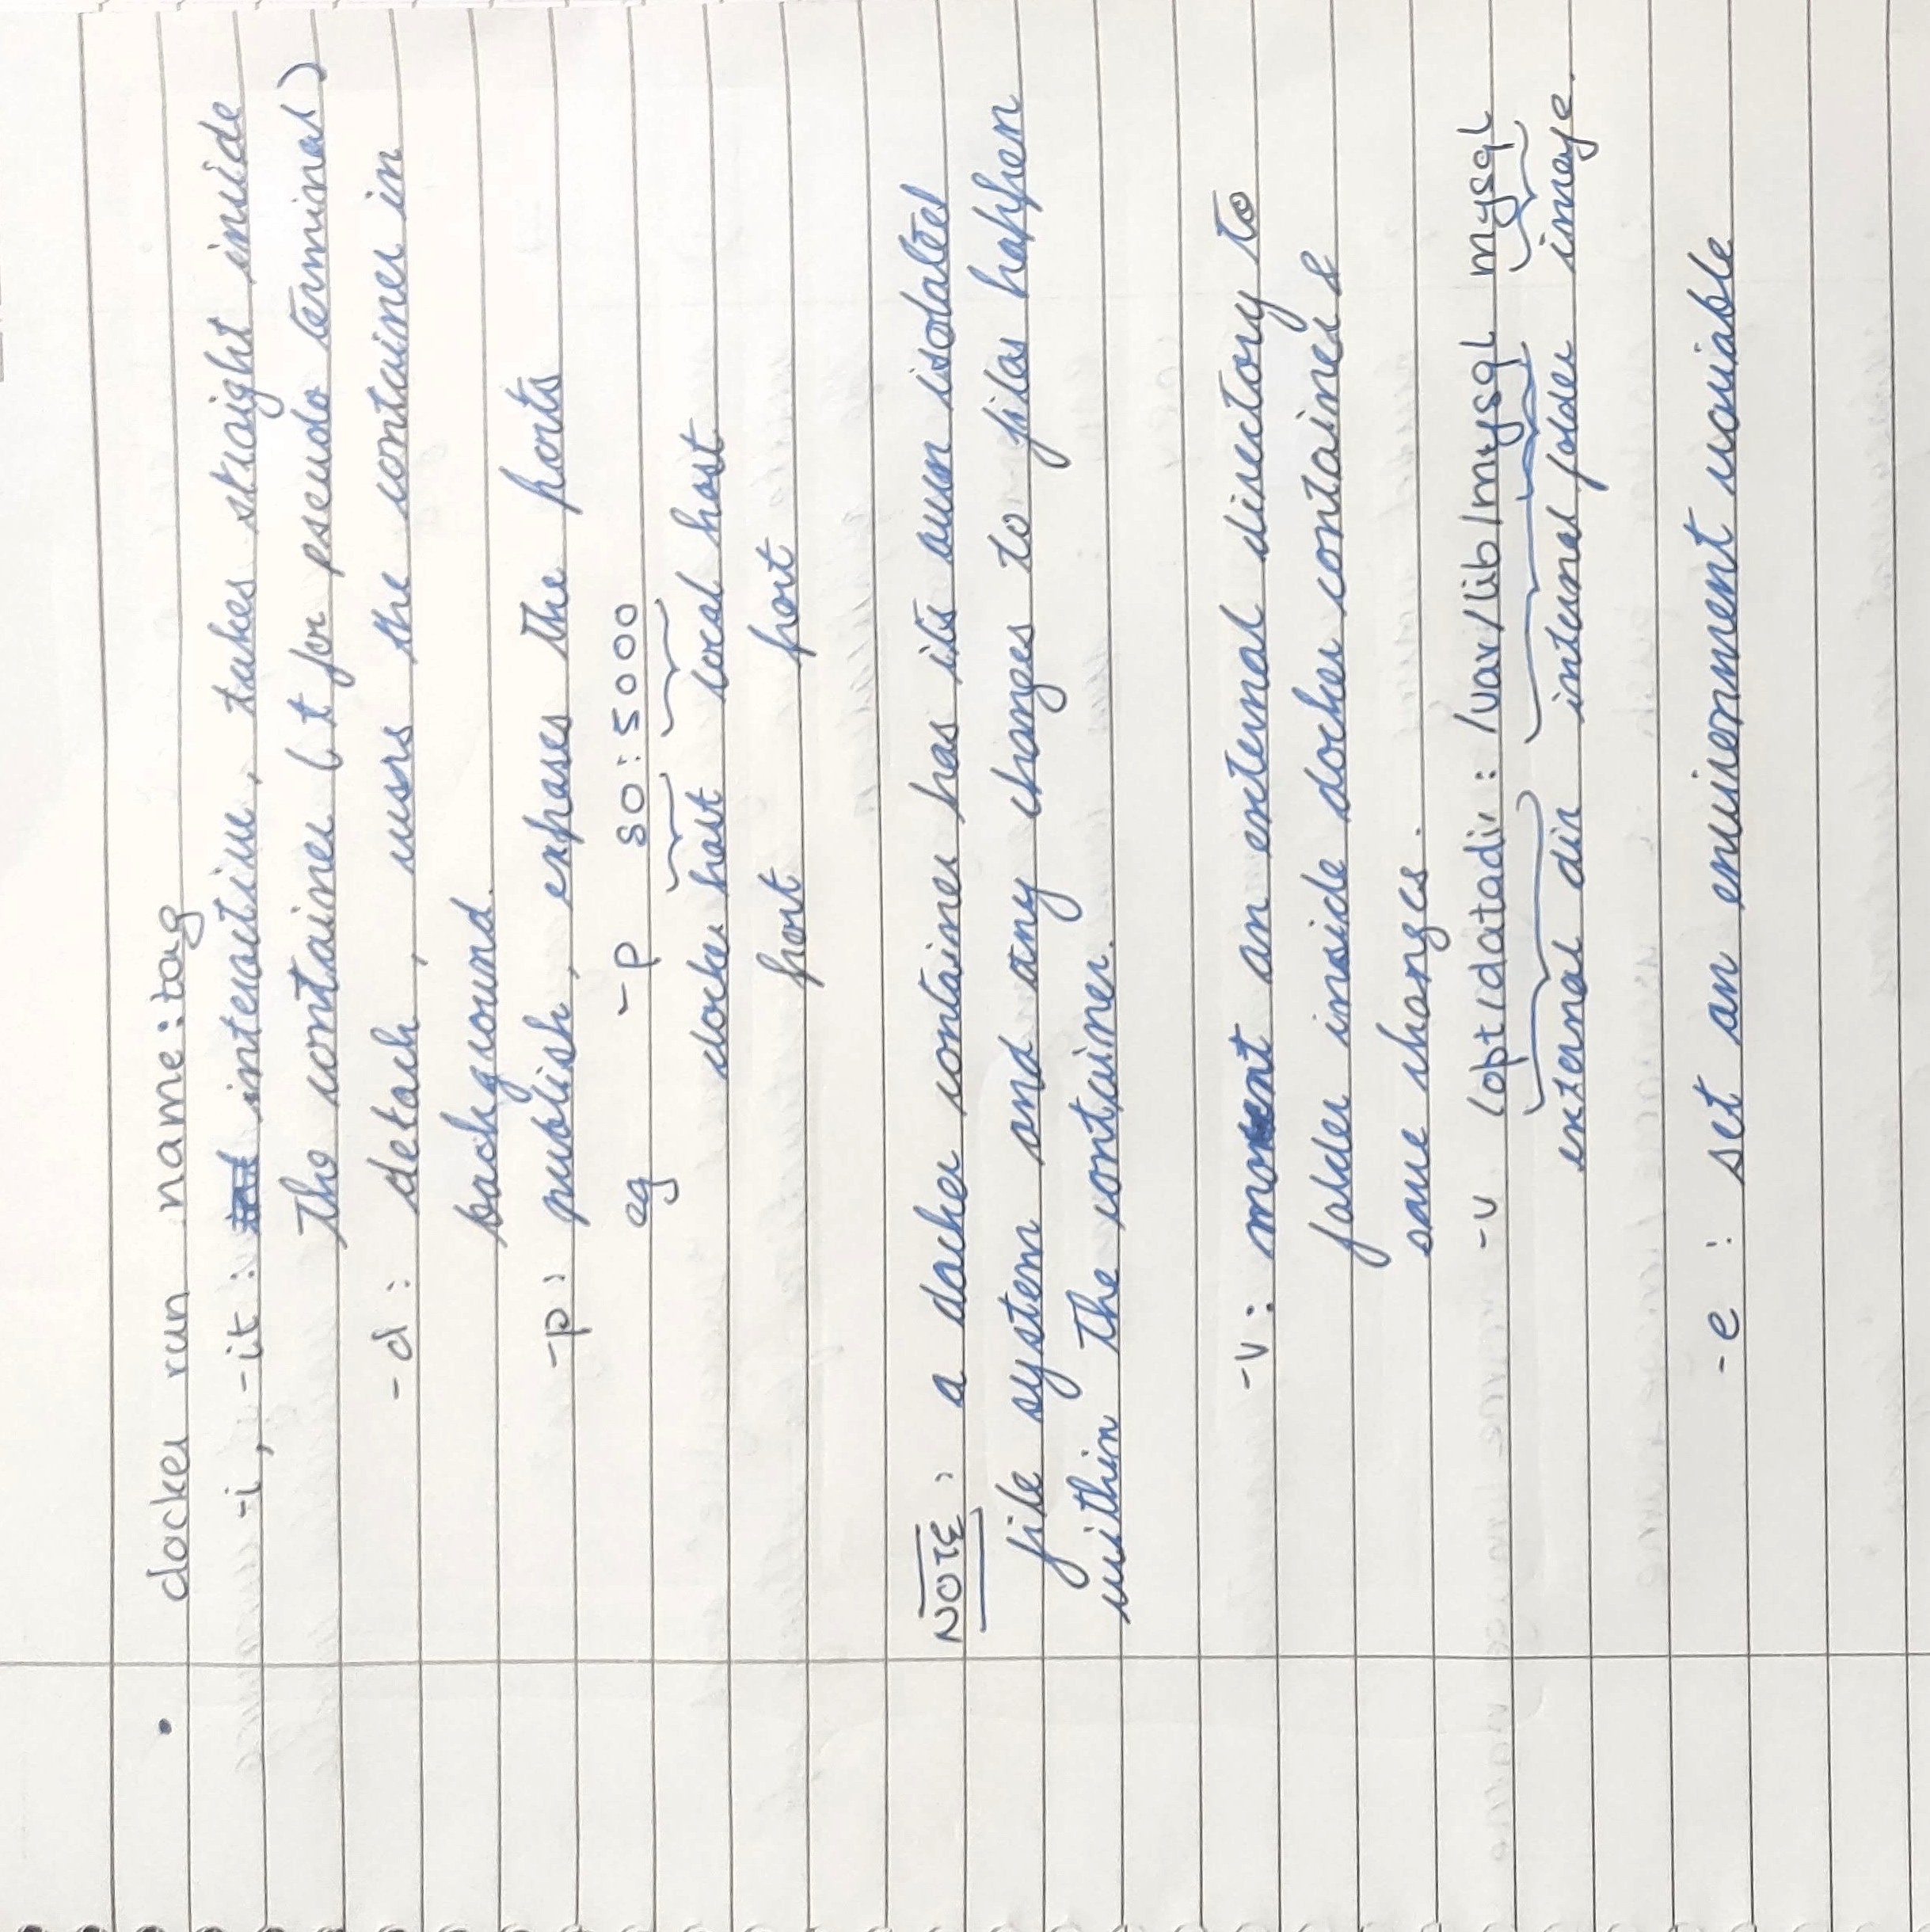 • docker run name:tag
-i, -it : interactive, takes straight inside
the container (t for pseudo terminal)
-d : detach, runs the container in
background.
-p : publish, exposes the ports
eg -p 80:5000
docker host local host
port port
NOTE : a docker container has its own isolated
file system and any changes to files happen
within the container.
-v : mount an external directory to
folder inside docker container &
save changes.
-v /opt/datadir : /var/lib/mysql mysql
external dir internal folder image.
-e : set an environment variable